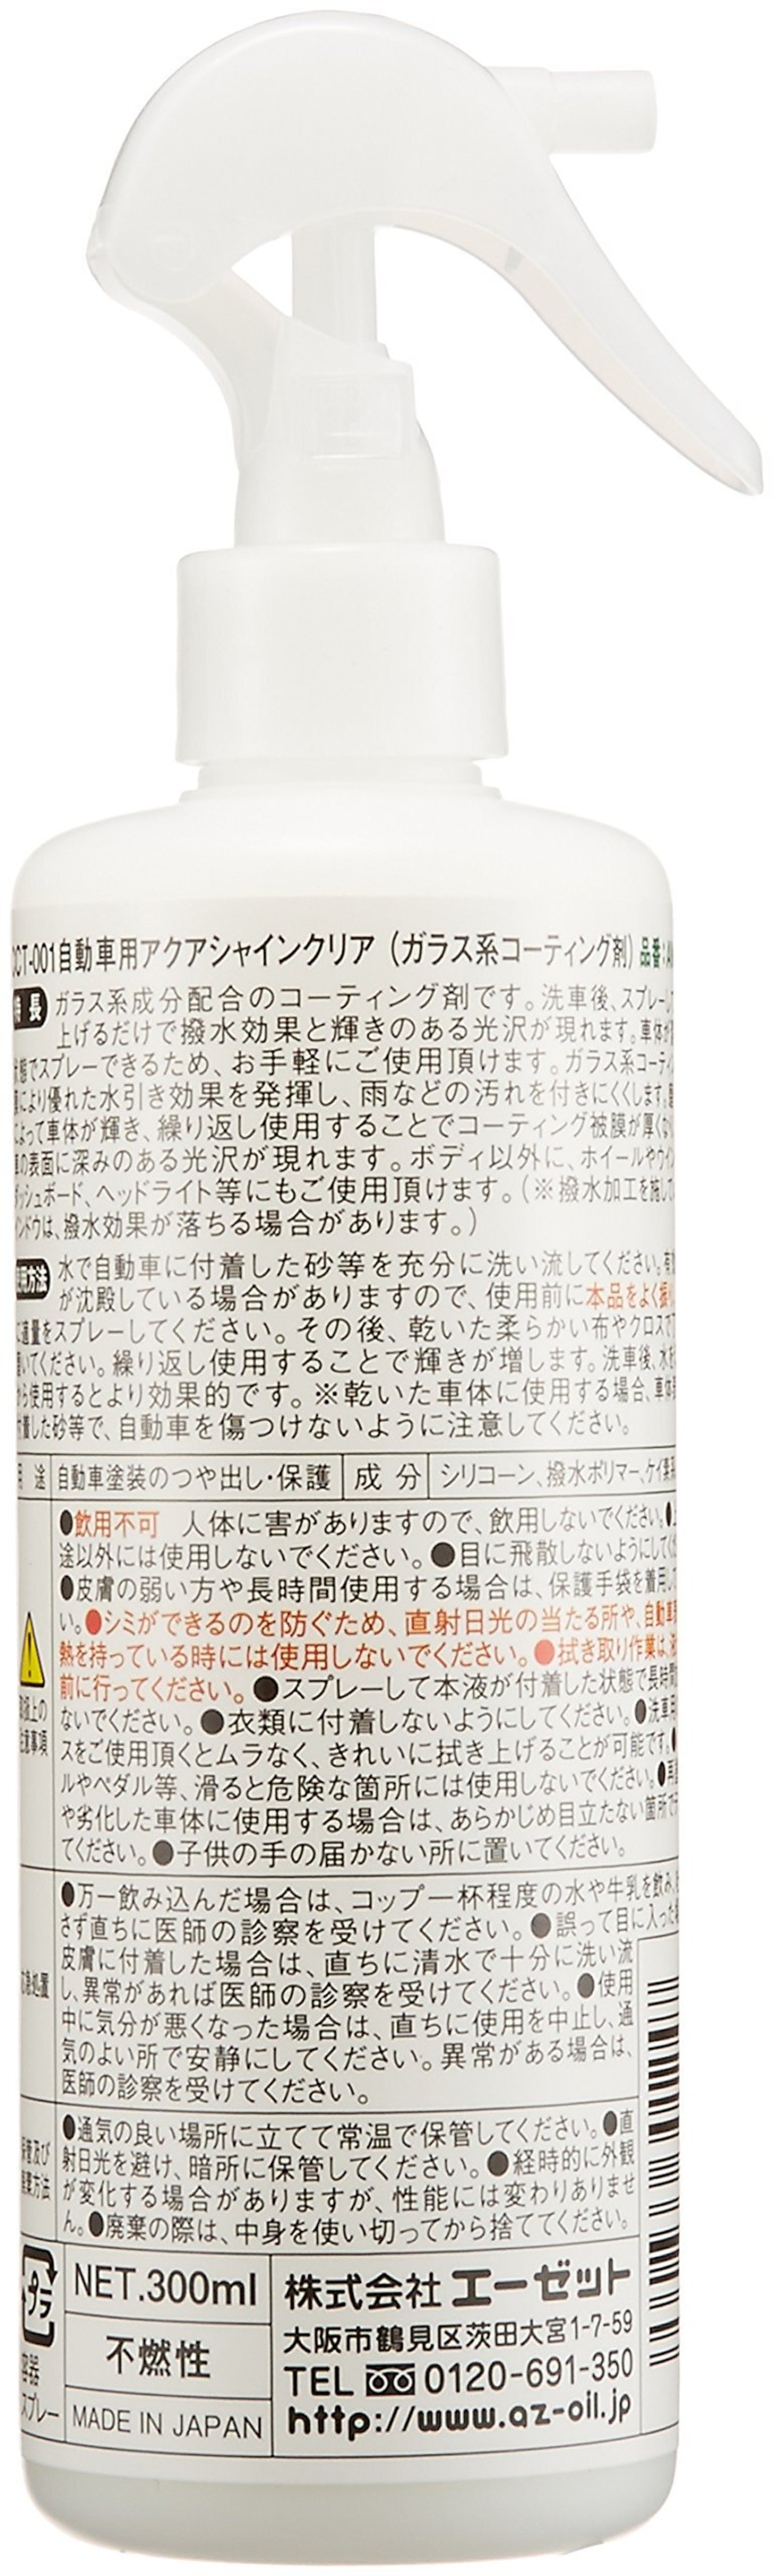 CCT-001自動車用アクアシャインクリア（ガラス系コーティング剤）品番：
特長 ガラス系成分配合のコーティング剤です。洗車後、スプレーして
上げるだけで撥水効果と輝きのある光沢が現れます。車体が
状態でスプレーできるため、お手軽にご使用頂けます。ガラス系コーティン
により優れた水引き効果を発揮し、雨などの汚れを付きにくくします。
よって車体が輝き、繰り返し使用することでコーティング被膜が厚くな
車の表面に深みのある光沢が現れます。ボディ以外に、ホイールやウイン
ダッシュボード、ヘッドライト等にもご使用頂けます。（※撥水加工を施して
ンドウは、撥水効果が落ちる場合があります。）
方法 水で自動車に付着した砂等を充分に洗い流してください。有
が沈殿している場合がありますので、使用前に本品をよく振
に適量をスプレーしてください。その後、乾いた柔らかい布やクロスで
いてください。繰り返し使用することで輝きが増します。洗車後、水を
から使用するとより効果的です。※乾いた車体に使用する場合、車体
付着した砂等で、自動車を傷つけないように注意してください。
用 途 自動車塗装のつや出し・保護 成 分 シリコーン、撥水ポリマー、ケイ素
●飲用不可 人体に害がありますので、飲用しないでください。●
途以外には使用しないでください。●目に飛散しないようにしてくだ
●皮膚の弱い方や長時間使用する場合は、保護手袋を着用して
い。●シミができるのを防ぐため、直射日光の当たる所や、自動車
熱を持っている時には使用しないでください。●拭き取り作業は、
前に行ってください。●スプレーして本液が付着した状態で長時間
ないでください。●衣類に付着しないようにしてください。●洗車用
スをご使用頂くとムラなく、きれいに拭き上げることが可能です。●
ルやペダル等、滑ると危険な箇所には使用しないでください。●再
や劣化した車体に使用する場合は、あらかじめ目立たない箇所で
てください。●子供の手の届かない所に置いてください。
取扱上の
注意事項
●万一飲み込んだ場合は、コップ一杯程度の水や牛乳を飲み、
さず直ちに医師の診察を受けてください。●誤って目に入った
皮膚に付着した場合は、直ちに清水で十分に洗い流
し、異常があれば医師の診察を受けてください。●使用
中に気分が悪くなった場合は、直ちに使用を中止し、通
気のよい所で安静にしてください。異常がある場合は、
医師の診察を受けてください。
応急処置
●通気の良い場所に立てて常温で保管してください。●直
射日光を避け、暗所に保管してください。●経時的に外観
が変化する場合がありますが、性能には変わりありませ
ん。●廃棄の際は、中身を使い切ってから捨ててください。
保管及び
廃棄方法
プラ
容器
スプレー
NET.300ml
不燃性
MADE IN JAPAN
株式会社 エーゼット
大阪市鶴見区茨田大宮1-7-59
TEL 0120-691-350
http://www.az-oil.jp